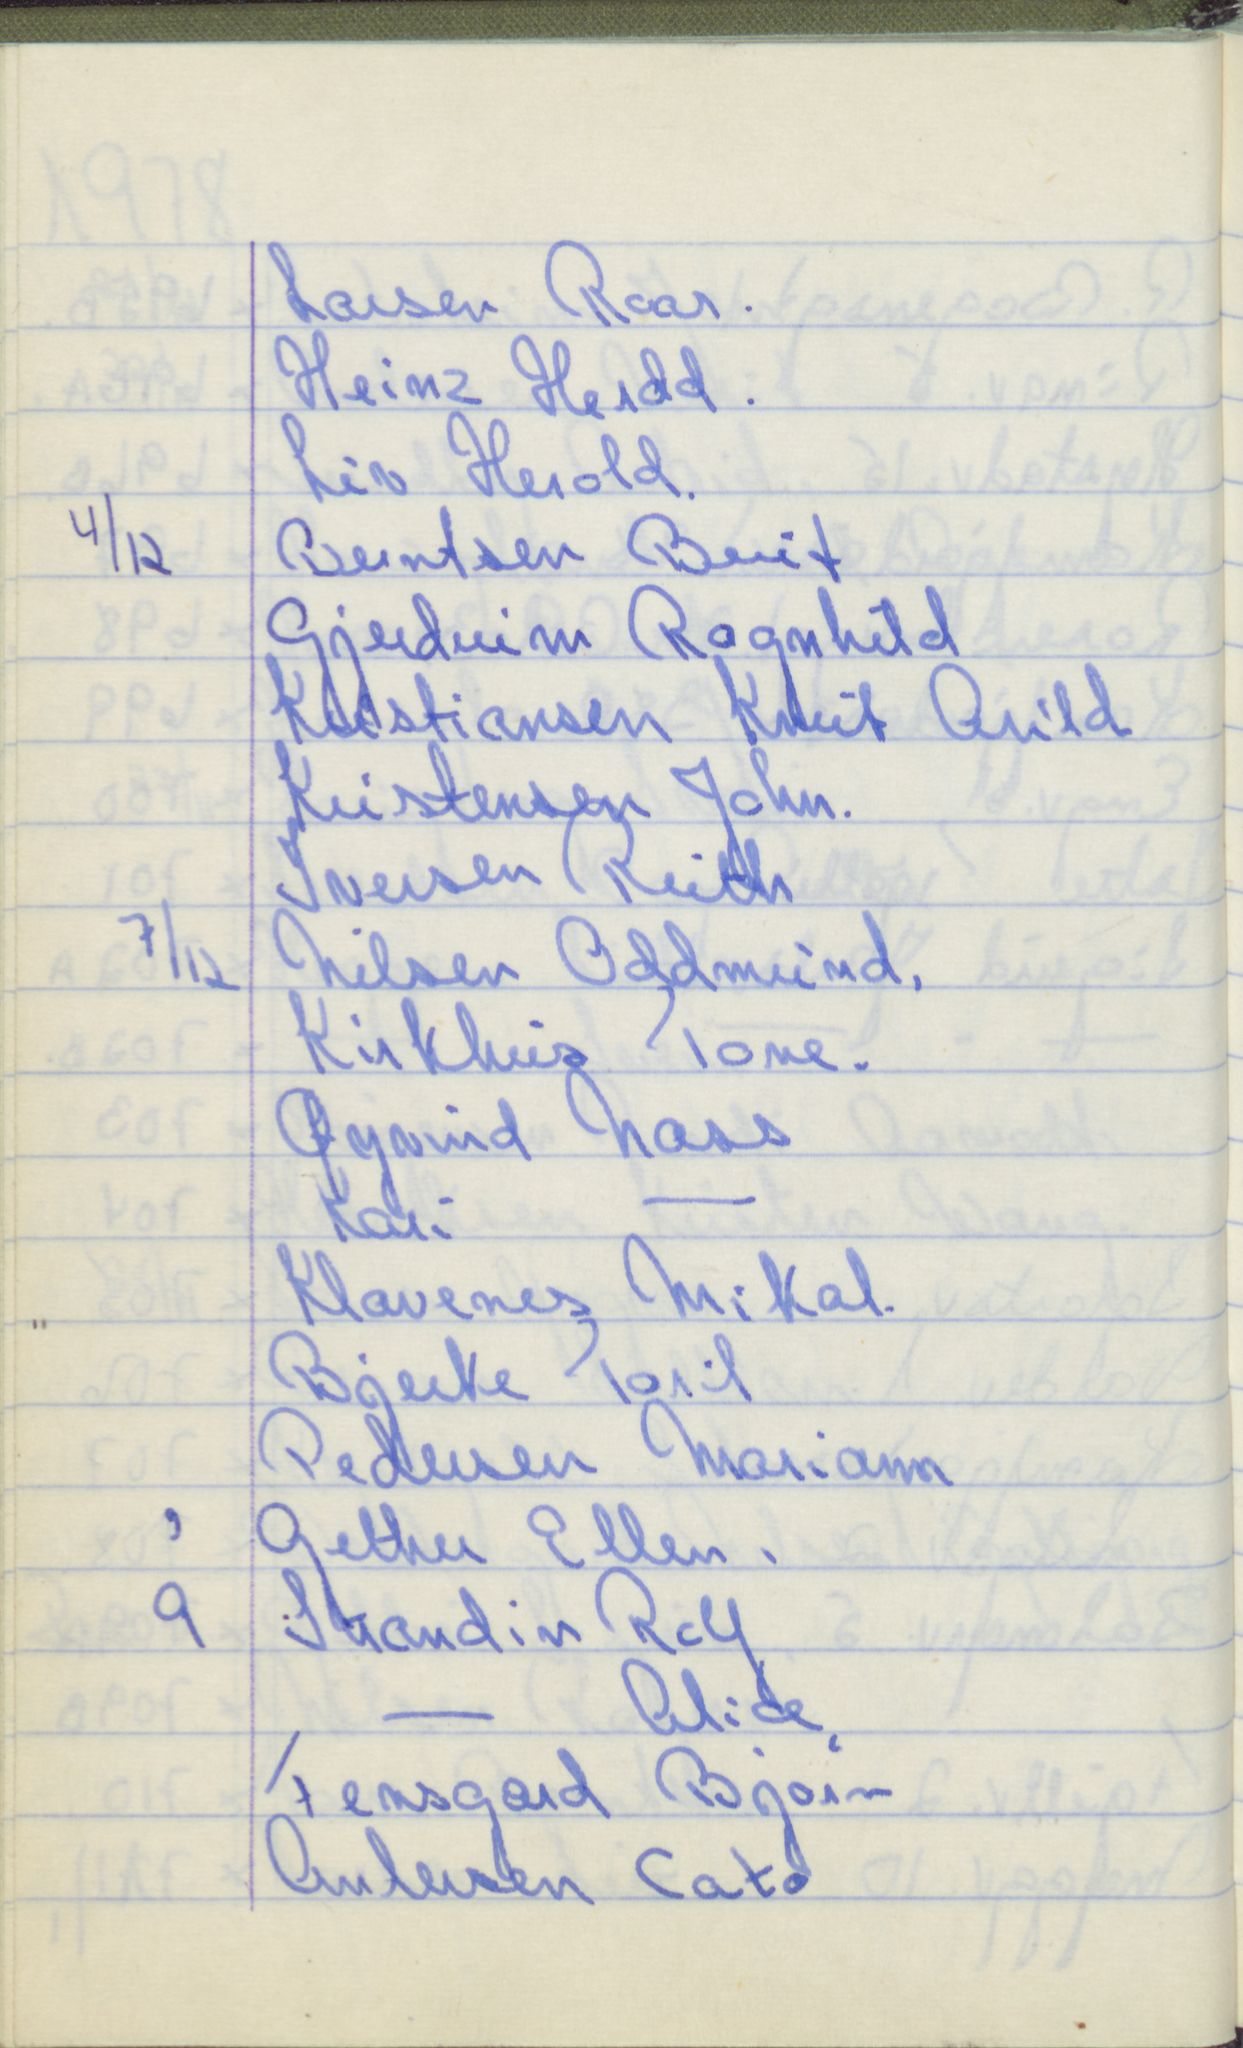 Larsen Roar.
Heinz Herold.
Liv Herold.
4/12 Berntsen Berit
Gjerdrum Ragnhild
Kristiansen Knut Arild
Kristensen John.
Iversen Reidr
7/12 Nilsen Oddmund.
Kirkhus Tone.
Øyvind Nass
Kari —
Klavenes Mikal.
" Bjerke Toril
Pedersen Mariann
, Gether Ellen.
9 Strandin Rolf
— Alice
Tensgard Bjørn
Andersen Cato